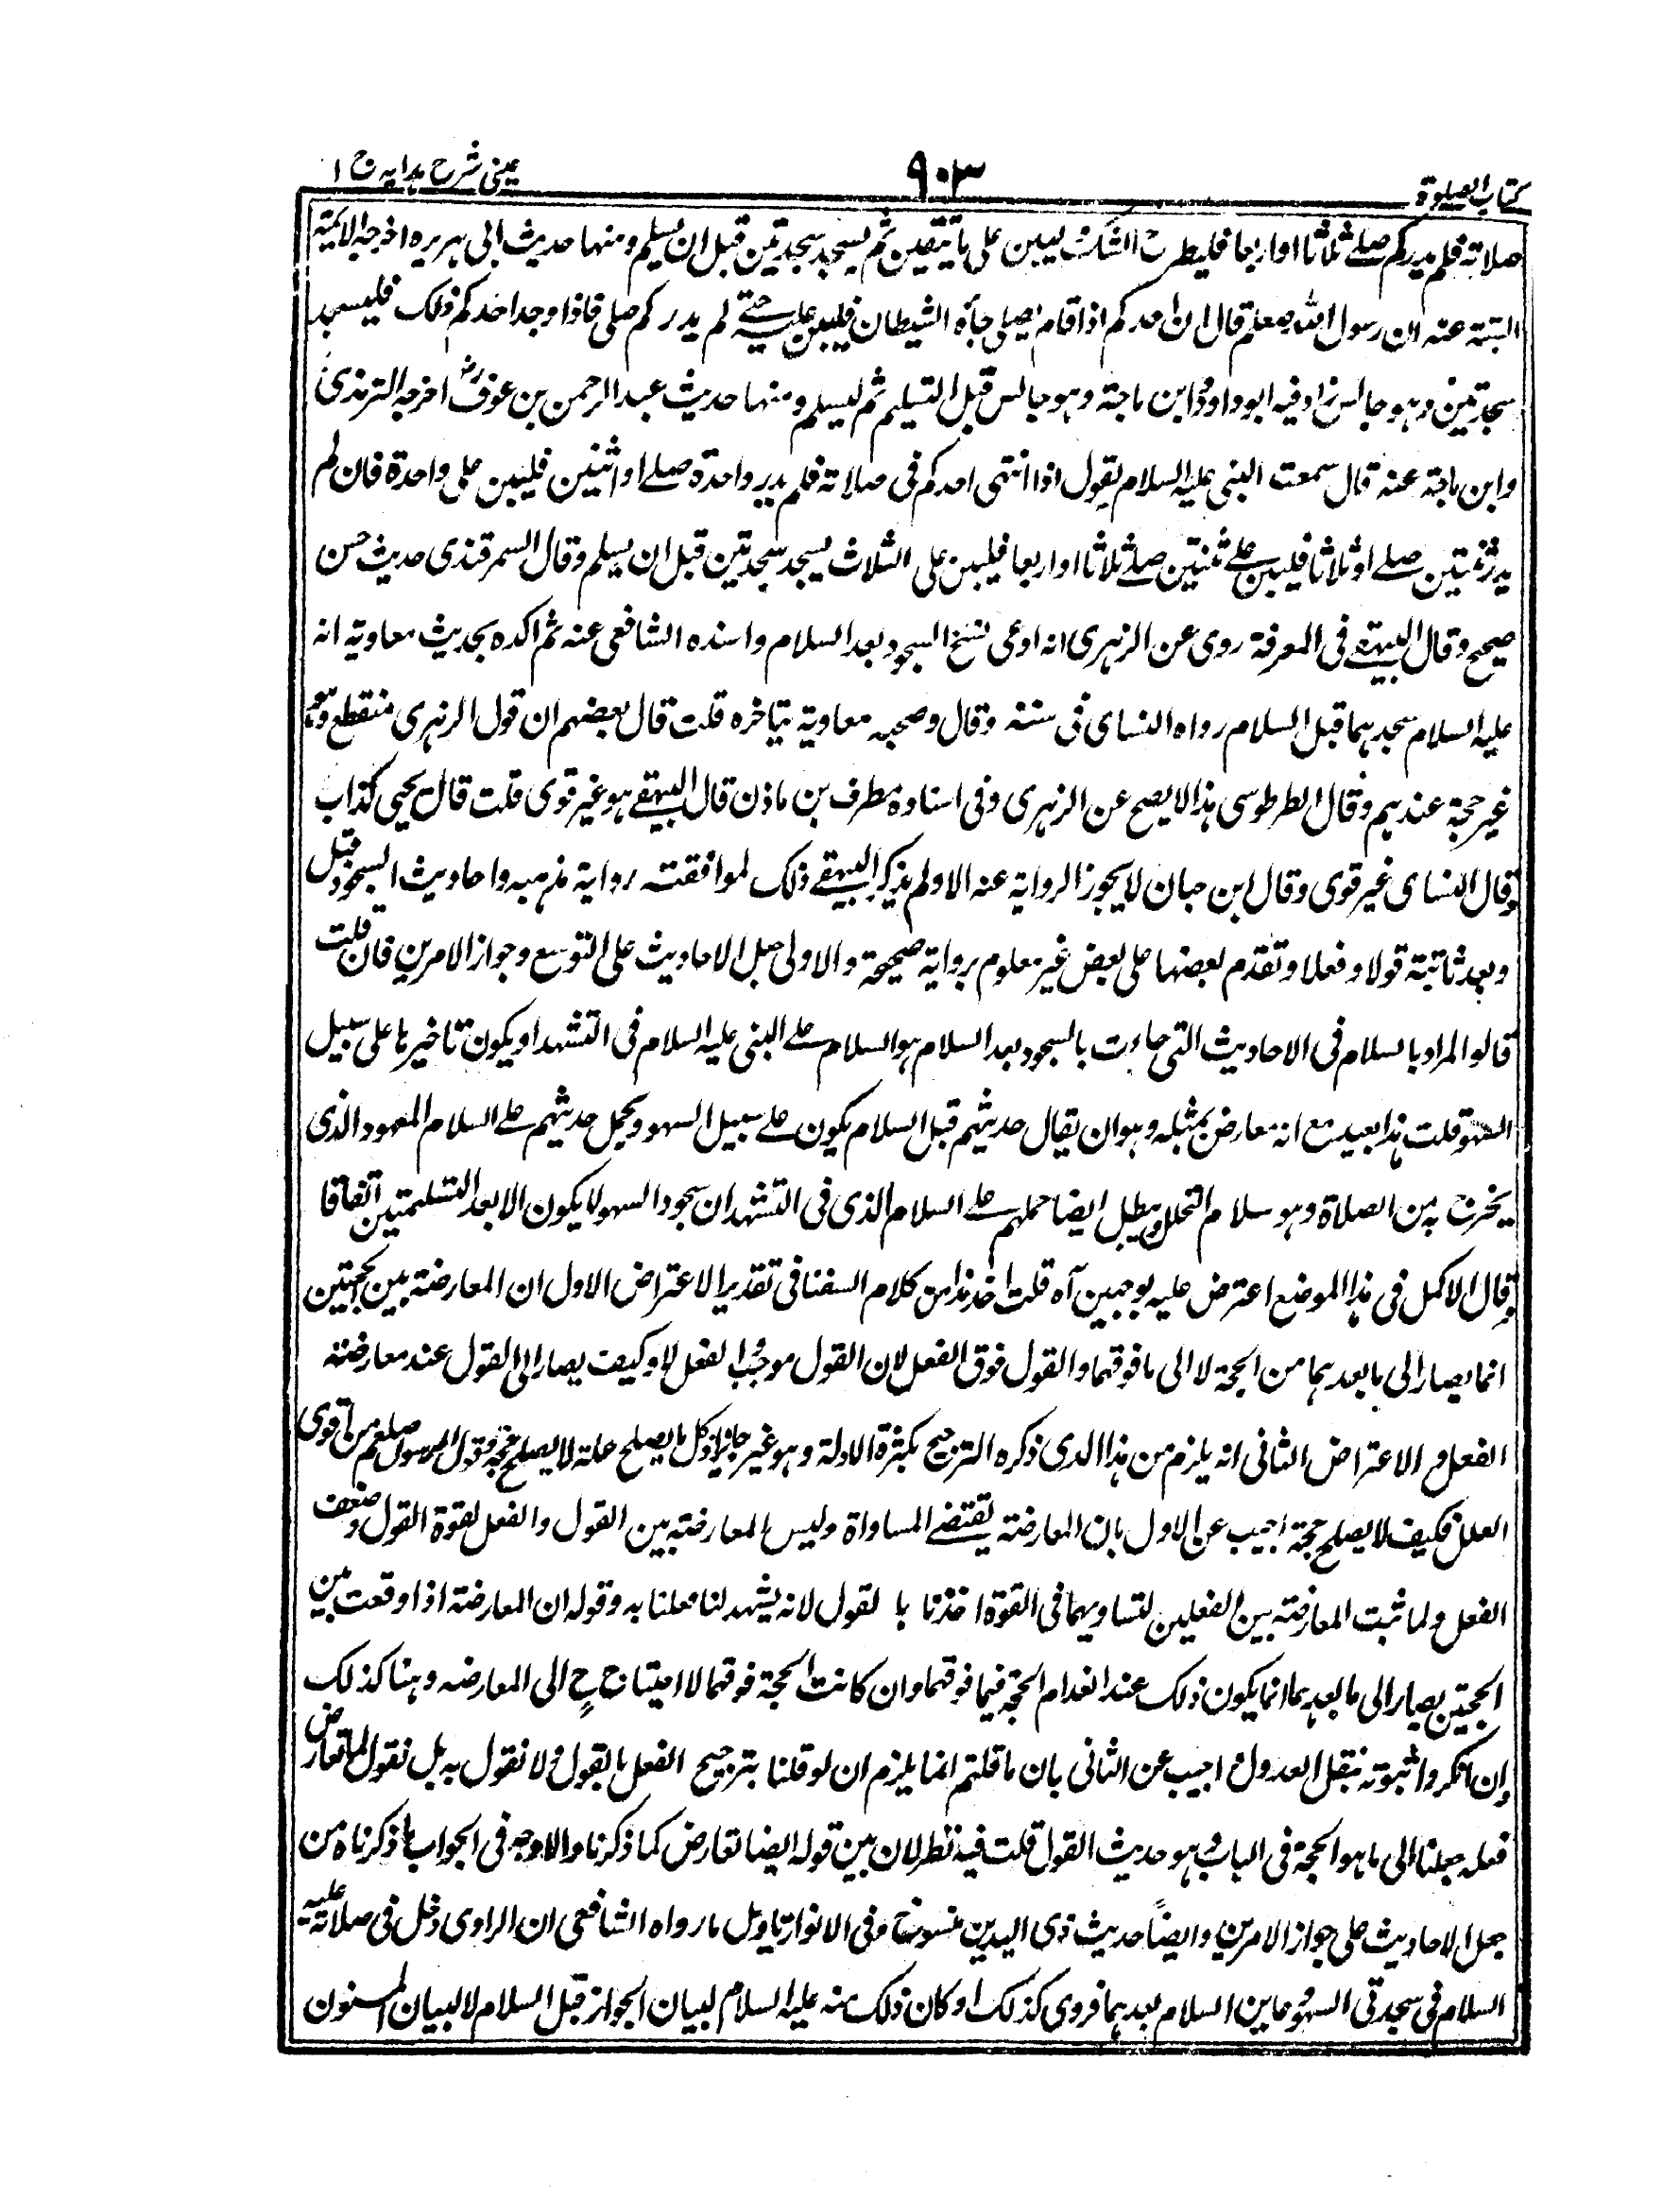 كتاب الصلوة
٩٠٣
عينى شرح هدايه ج ١
صلاته فلم يدر كم صلى ثلاثا او اربعا فليطرح الشك وليبن على ما تيقن ثم يسجد سجدتين قبل ان يسلم ومنها حديث ابى هريره اخرجه الائمة
الستة عنه ان رسول الله صلعم قال ان احدكم اذا قام يصلى جاءه الشيطان فلبس عليه حتى لم يدر كم صلى فاذا وجد احدكم ذلك فليسجد
سجدتين وهو جالس زاد فيه ابو داود وابن ماجة وهو جالس قبل التسليم ثم ليسلم ومنها حديث عبد الرحمن بن عوف رض اخرجه الترمذى
وابن ماجة عنه قال سمعت النبى عليه السلام يقول اذا انتهى احدكم فى صلاته فلم يدر واحدة صلى او اثنين فليبن على واحدة فان لم
يدر ثنتين صلى او ثلاثا فليبن على ثنتين صلى ثلاثا او اربعا فليبن على الثلاث يسجد سجدتين قبل ان يسلم وقال السمرقندى حديث حسن
صحيح وقال البيهقى فى المعرفة روى عن الزهرى انه ادعى نسخ السجود بعد السلام واسنده الشافعى عنه ثم اكده بحديث معاوية انه
عليه السلام سجدهما قبل السلام رواه النساى فى سننه وقال وصحبه معاوية بتاخره قلت قال بعضهم ان قول الزهرى منقطع وهو
غير حجة عندهم وقال الطرطوسى هذا لا يصح عن الزهرى وفى اسناده مطرف بن ماذن قال البيهقى هو غير قوى قلت قال يحيى كذاب
وقال النساى غير قوى وقال ابن حبان لا يجوز الرواية عنه الا ولم يذكر البيهقى ذلك لموافقته رواية مذهبه واحاديث السجود قبل
وبعد ثابتة قولا وفعلا وتقدم بعضها على بعض غير معلوم برواية صحيحة والاولى حمل الاحاديث على التوسع وجواز الامرين فان قلت
قالوا المراد بالسلام فى الاحاديث التى جاءت بالسجود بعد السلام هو السلام على النبى عليه السلام فى التشهد او يكون تاخيرها على سبيل
السهو قلت هذا بعيد مع انه معارض بمثله وهو ان يقال حديثهم قبل السلام يكون على سبيل السهو ويحمل حديثهم على السلام المعهود الذى
يخرج به من الصلاة وهو سلام التحلل ويبطل ايضا حملهم على السلام الذى فى التشهد ان سجود السهو لا يكون الا بعد التسليمتين اتفاقا
وقال الاكمل فى هذا الموضع اعترض عليه بوجهين آه قلت اخذ هذا من كلام السغناقى تقدير الاعتراض الاول ان المعارضة بين الحجتين
انما يصار الى ما بعدهما من الحجة لا الى ما فوقهما والقول فوق الفعل لان القول موجب والفعل لا وكيف يصار الى القول عند معارضته
الفعل والاعتراض الثانى انه يلزم من هذا الذى ذكره الترجيح بكثرة الادلة وهو غير جايز اذ كل ما يصلح علة لا يصلح مرجحة وقول الرسول صلعم من اقوى
العلل فكيف لا يصلح حجة اجيب عن الاول بان المعارضة يقتضى المساواة وليس المعارضة بين القول والفعل لقوة القول وضعف
الفعل ولما ثبت المعارضة بين الفعلين لتساويهما فى القوة اخذنا با لقول لانه يشهد لنا فعلنا به وقوله ان المعارضة اذا وقعت بين
الحجتين يصار الى ما بعدهما انما يكون ذلك عند انعدام الحجة فيما فوقهما وان كانت الحجة فوقهما لا احتياج ح الى المعارضه وهنا كذلك
وان انكروا ثبوته بنقل العدول اجيب عن الثانى بان ما قلتم انما يلزم ان لو قلنا بترجيح الفعل بالقول ولا نقول به بل نقول لما تعارض
فعله جعلنا الى ما هو الحجة فى الباب وهو حديث القول قلت فيه نظر لان بين قوله ايضا تعارض كما ذكرنا والاوجه فى الجواب ما ذكرناه من
حمل الاحاديث على جواز الامرين وايضاً حديث ذى اليدين منسوخ وفى الانوار تاويل ما رواه الشافعى ان الراوى دخل فى صلاته عليه
السلام فى سجدتى السهو وعاين السلام بعدهما فروى كذلك او كان ذلك منه عليه السلام لبيان الجواز قبل السلام لا لبيان المسنون